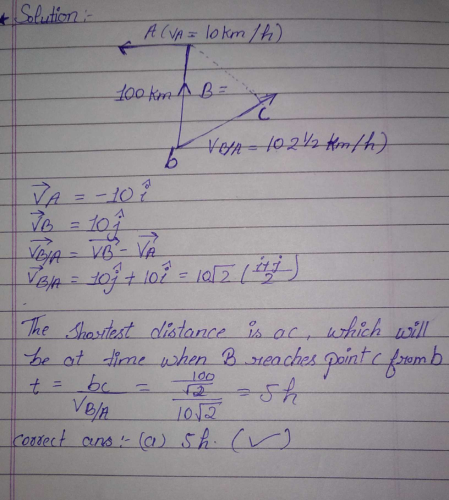 * Solution:-
A (VA = 10km/h)
100km B =
c
b VB/A = 10 2 1/2 km/h)
→VA = -10 î
→VB = 10ĵ
→VB/A = →VB - →VA
→VB/A = 10ĵ + 10î = 10√2 (i+j/2)
The shortest distance is ac, which will
be at time when B reaches point c from b
t = bc/VB/A = 100/√2/10√2 = 5h
correct ans:- (a) 5h. (✓)